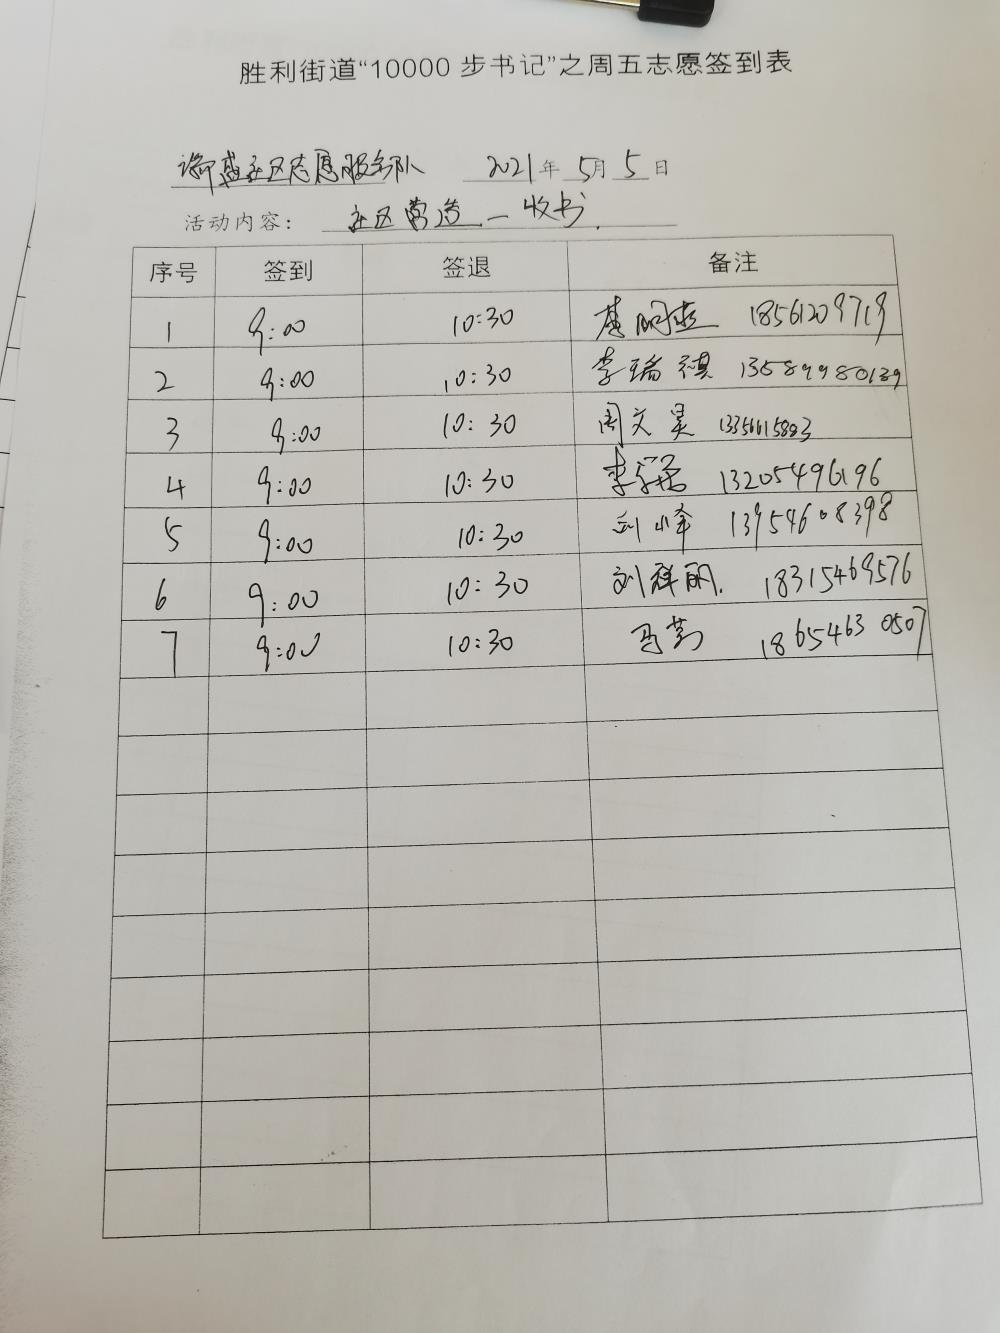 胜利街道“10000步书记”之周五志愿签到表
盛社区志愿服务队 2021年5月5日
活动内容： 社区营造—收书.
序号 签到 签退 备注
1 9:00 10:30 18561209719
2 9:00 10:30 李瑞祺 13589980139
3 9:00 10:30 周文昊
4 9:00 10:30 李 13205496196
5 9:00 10:30 刘峰 13954608398
6 9:00 10:30 刘祥丽. 18315469576
7 9:00 10:30 马 18654630507